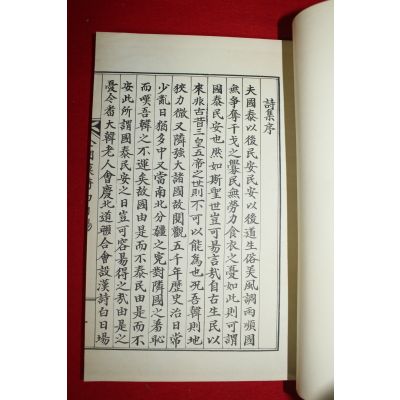 詩集序
夫國泰以後民安民安以後道生俗美風調雨順國
無爭奪干戈之釁民無勞力食衣之憂如此則可謂
國泰民安也然如斯聖世豈可易言哉自古生民以
來非古昔三皇五帝之世則不可以能為也况吾韓則地
狹力微又隣強大諸國故閱觀五千年歷史治日常
少亂日猶多中又當南北分疆之寃對隣國之羞恥
而嘆吾韓之不運矣故國由是而不泰民由是而不
安此所謂國泰民安之日豈可容易得之哉由是之
憂今者大韓老人會慶北道聯合會設漢詩白日場